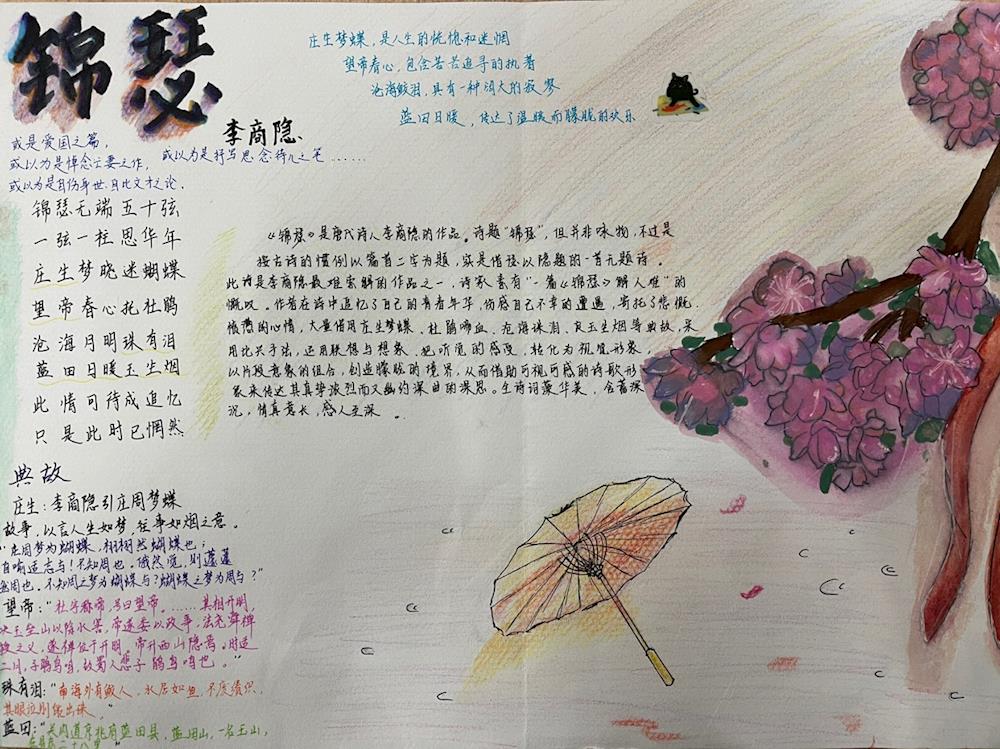 锦瑟
李商隐
庄生梦蝶，是人生的恍惚和迷惘
望帝春心，包含苦苦追寻的执着
沧海鲛泪，具有一种阔大的寂寥
蓝田日暖，传达了温暖而朦胧的欢乐
或是爱国之篇，
或以为是悼念亡妻之作，
或以为是抒写思念待儿之笔……
或以为是自伤身世、自比文才之论．
锦瑟无端五十弦
一弦一柱思华年
庄生梦晓迷蝴蝶
望帝春心托杜鹃
沧海月明珠有泪
蓝田日暖玉生烟
此情可待成追忆
只是此时已惘然
《锦瑟》是唐代诗人李商隐的作品。诗题“锦瑟”，但并非咏物，不过是
按古诗的惯例以篇首二字为题，实是借瑟以隐题的一首无题诗。
此诗是李商隐最难索解的作品之一，诗家素有“一篇《锦瑟》解人难”的
慨叹。作者在诗中追忆了自己的青春年华，伤感自己不幸的遭遇，寄托了悲慨、
愤懑的心情，大量借用庄生梦蝶、杜鹃啼血、沧海珠泪、良玉生烟等典故，采
用比兴手法，运用联想与想象，把听觉的感受，转化为视觉形象，
以片段意象的组合，创造朦胧的境界，从而借助可视可感的诗歌形
象来传达其真挚浓烈而又幽约深曲的深思。全诗词藻华美，含蓄深
沉，情真意长，感人至深。
典故
庄生：李商隐引庄周梦蝶
故事，以言人生如梦，往事如烟之意。
“庄周梦为蝴蝶，栩栩然蝴蝶也；
自喻适志与！不知周也。俄然觉，则蘧蘧
然周也。不知周之梦为蝴蝶与？蝴蝶之梦为周与？”
望帝：“杜宇称帝，号曰望帝。……其相开明，
决玉垒山以除水害，帝遂委以政事，法尧舜禅
授之义，遂禅位于开明。帝升西山隐焉。时适
二月，子鹃鸟鸣，故蜀人悲子鹃鸟鸣也。”
珠有泪：“南海外有鲛人，水居如鱼，不废绩织，
其眼泣则能出珠。”
蓝田：“关内道京兆府蓝田县，蓝田山，一名玉山，
在县东二十八里”